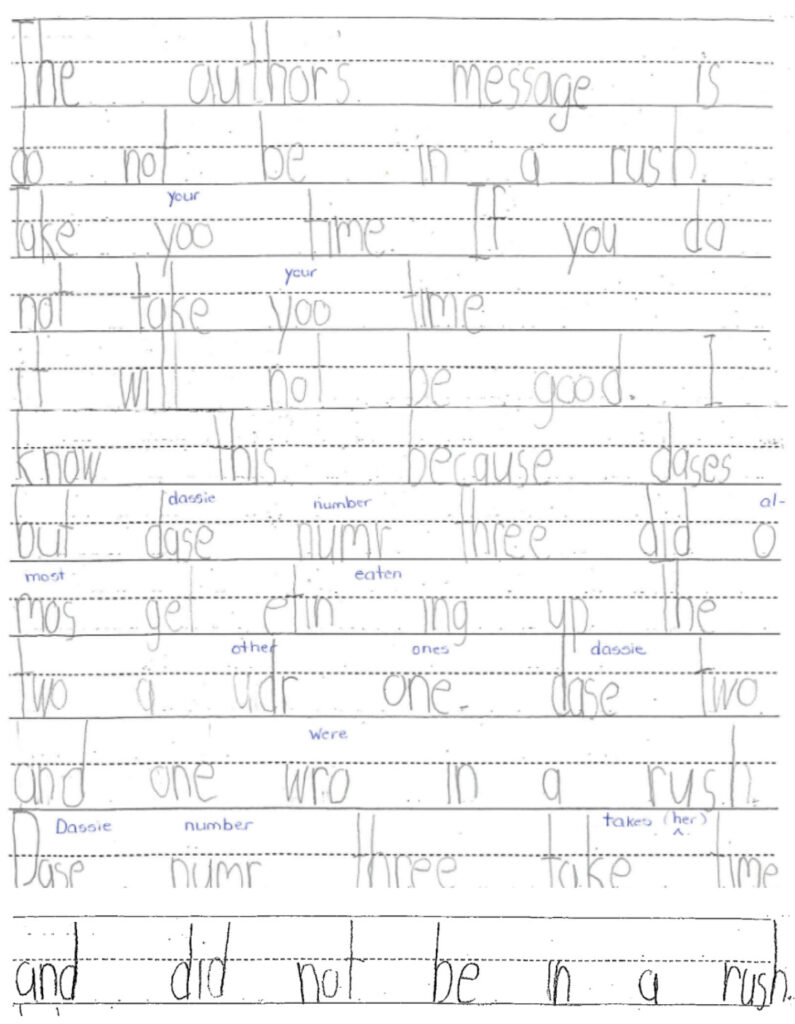 The author's message is
do not be in a rush.
your
Take yoo time. If you do
your
not take yoo time
it will not be good. I
know this because dases
dassie number al-
but dase numr three did o
most eaten
mos get etin ing up. The
other ones dassie
two a udr one. dase two
were
and one wro in a rush.
Dassie number takes (her)
^
Dase numr three take time
and did not be in a rush.